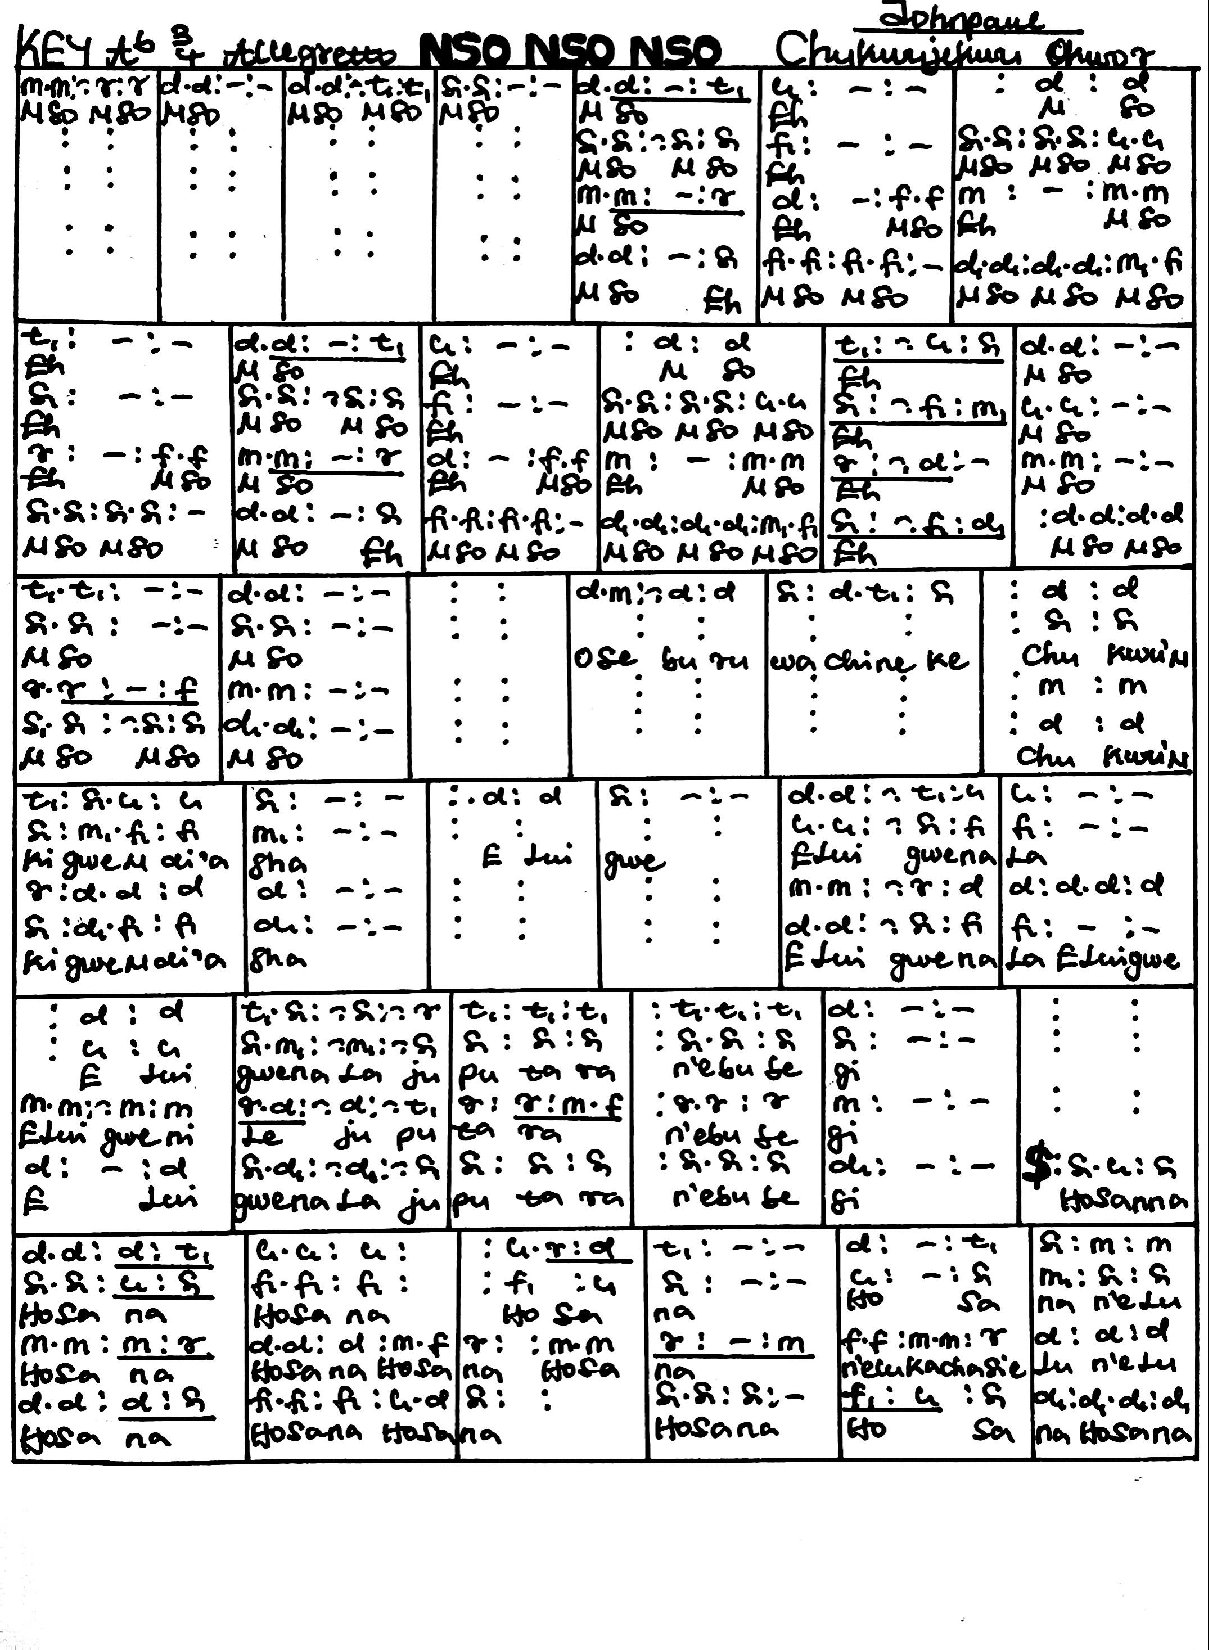 KEY Ab 3/4 Allegretto NSO NSO NSO Johnpaul Chukwujekwu Okwor
m.m:-.r:r | d.d:-:- | d.d:-.t₁:t₁ | s₁.s₁:-:- | d.d:-:t₁ | l₁: -:- | : d : d
NSo NSo | NSo | NSo NSo | NSo | N So | Eh | N So
: : | : : | : : | : : | s₁.s₁:-.s₁:s₁ | f₁: -:- | s₁.s₁:s₁.s₁:l₁.l₁
NSo NSo | Eh | NSo NSo NSo
: : | : : | : : | : : | m.m: -:r | d: -:f.f | m: -:m.m
N So | Eh NSo | Eh NSo
: : | : : | : : | : : | d.d: -:s₁ | f₁.f₁:f₁.f₁:- | d₁.d₁:d₁.d₁:m₁.f₁
NSo Eh | NSo NSo | NSo NSo NSo
t₁: -:- | d.d: -:t₁ | l₁: -:- | : d: d | t₁:-.l₁:s₁ | d.d: -:-
Eh | N So | Eh | N So | Eh | N So
s₁: -:- | s₁.s₁:-.s₁:s₁ | f₁: -:- | s₁.s₁:s₁.s₁:l₁.l₁ | s₁:-.f₁:m₁ | l₁.l₁: -:-
Eh | NSo NSo | Eh | NSo NSo NSo | Eh | NSo
r: -:f.f | m.m: -:r | d: -:f.f | m: -:m.m | r:-.d:- | m.m: -:-
Eh NSo | N So | Eh NSo | Eh NSo | Eh | NSo
s₁.s₁:s₁.s₁:- | d.d: -:s₁ | f₁.f₁:f₁.f₁:- | d₁.d₁:d₁.d₁:m₁.f₁ | s₁:-.f₁:d₁ | :d.d:d.d
NSo NSo | NSo Eh | NSo NSo | NSo NSo NSo | Eh | NSo NSo
t₁.t₁: -:- | d.d: -:- | : : | d.m:-.d:d | s₁: d.t₁: s₁ | : d : d
s₁.s₁: -:- | s₁.s₁: -:- | : : | : : | : : | : s₁ : s₁
NSo | NSo | Ose bu ru | wa chine ke | Chu KwuiN
r.r: -:f | m.m: -:- | : : | : : | : : | : m : m
s₁.s₁:-.s₁:s₁ | d₁.d₁: -:- | : : | : : | : : | : d : d
NSo NSo | NSo | Chu KwuiN
t₁: s₁.l₁: l₁ | s₁: -:- | :.d: d | s₁: -:- | d.d:-.t₁:l₁ | l₁: -:-
s₁:m₁.f₁:f₁ | m₁: -:- | : : | : : | l₁.l₁:-.s₁:f₁ | f₁: -:-
Ki gweN di'a | gha | E lui | gwe | Elui gwena | La
r:d.d:d | d: -:- | : : | : : | m.m:-.r:d | d:d.d:d
s₁:d₁.f₁:f₁ | d₁: -:- | : : | : : | d.d:-.s₁:f₁ | f₁: -:-
Ki gweN di'a | gha | Elui gwena | La Eluigwe
: d : d | t₁.s₁:-.s₁:-.r | t₁: t₁:t₁ | :t₁.t₁:t₁ | d: -:- | : :
: l₁ : l₁ | s₁.m₁:-.m₁:-.s₁ | s₁: s₁:s₁ | :s₁.s₁:s₁ | s₁: -:- | : :
E lui | gwena La ju | pu ta ra | n'ebu be | gi
m.m:-.m:m | r.d:-.d:-.t₁ | r: r:m.f | :r.r:r | m: -:- | : :
Elui gwe ni | Le ju pu | ta ra | n'ebu be | gi
d: -:d | s₁.d₁:-.d₁:-.s₁ | s₁: s₁:s₁ | :s₁.s₁:s₁ | d₁: -:- | $:s₁.l₁:s₁
E lui | gwena La ju | pu ta ra | n'ebu be | gi | Hosanna
d.d: d:t₁ | l₁.l₁: l₁: | :l₁.r:d | t₁: -:- | d: -:t₁ | s₁:m:m
s₁.s₁: l₁:s₁ | f₁.f₁: f₁: | :f₁ :l₁ | s₁: -:- | l₁: -:s₁ | m₁:s₁:s₁
HoSa na | HoSa na | Ho Sa | na | Ho Sa | na n'elu
m.m: m:r | d.d: d:m.f | r: :m.m | r: -:m | f.f:m.m:r | d: d:d
HoSa na | Hosana Hosa | na Hosa | na | n'elukachasie | lu n'elu
d.d: d:s₁ | f₁.f₁: f₁:l₁.d | s₁: : | s₁.s₁: s₁:- | f₁: l₁ :s₁ | d₁:d₁.d₁:d₁
Hosa na | Hosana Hosa | na | Hosana | Ho Sa | na Hosana